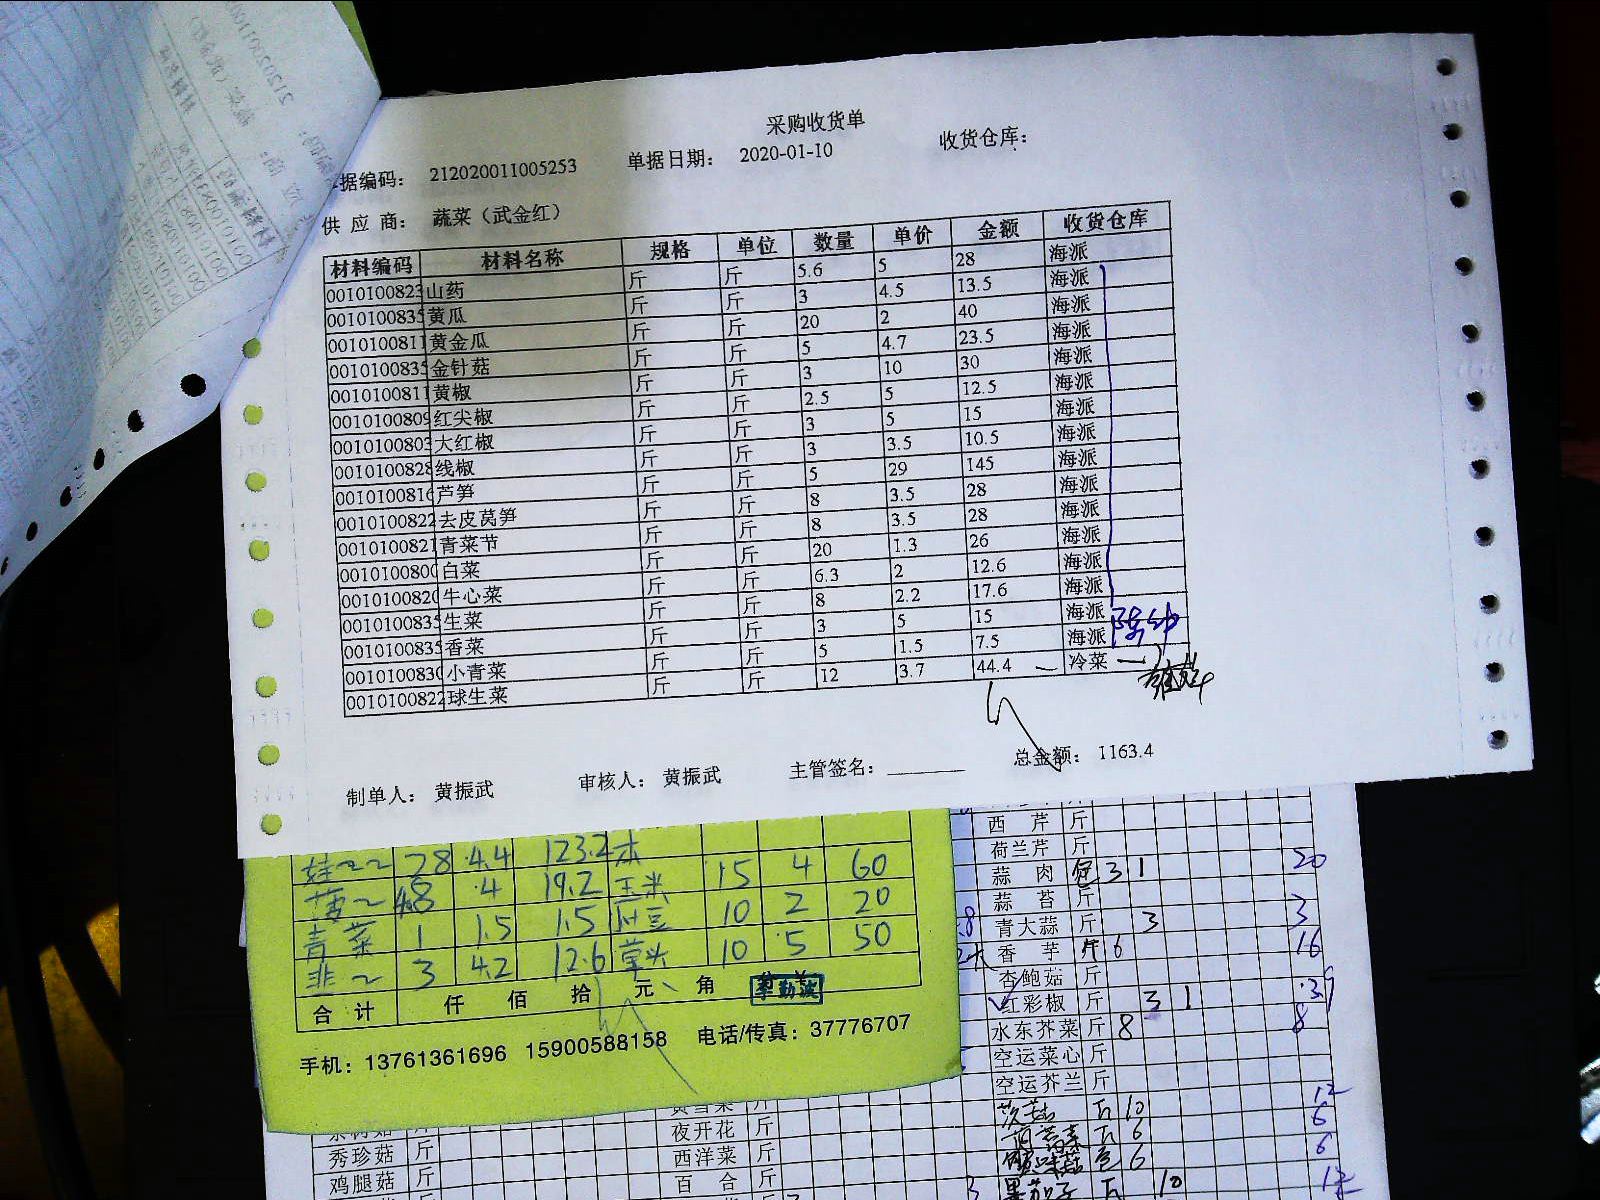 采购收货单
据编码: 212020011005253 单据日期: 2020-01-10 收货仓库:
供应商: 蔬菜（武金红）
材料编码 材料名称 规格 单位 数量 单价 金额 收货仓库
0010100823 山药 斤 斤 5.6 5 28 海派
0010100835 黄瓜 斤 斤 3 4.5 13.5 海派
0010100811 黄金瓜 斤 斤 20 2 40 海派
0010100835 金针菇 斤 斤 5 4.7 23.5 海派
0010100811 黄椒 斤 斤 3 10 30 海派
0010100809 红尖椒 斤 斤 2.5 5 12.5 海派
0010100803 大红椒 斤 斤 3 5 15 海派
0010100828 线椒 斤 斤 3 3.5 10.5 海派
0010100816 芦笋 斤 斤 5 29 145 海派
0010100822 去皮莴笋 斤 斤 8 3.5 28 海派
0010100821 青菜节 斤 斤 8 3.5 28 海派
0010100800 白菜 斤 斤 20 1.3 26 海派
0010100820 牛心菜 斤 斤 6.3 2 12.6 海派
0010100835 生菜 斤 斤 8 2.2 17.6 海派
0010100835 香菜 斤 斤 3 5 15 海派
0010100830 小青菜 斤 斤 5 1.5 7.5 海派
0010100822 球生菜 斤 斤 12 3.7 44.4 冷菜
制单人: 黄振武 审核人: 黄振武 主管签名: 总金额: 1163.4
28 4.4 123.2
4.8 4 19.2 玉米 15 4 60
青菜 1 1.5 1.5 10 2 20
韭 3 4.2 12.6 草头 10 5 50
合计 仟 佰 拾 元 角
手机: 13761361696 15900588158 电话/传真: 37776707
西芹 斤
荷兰芹 斤
蒜肉 3 1 20
蒜苔 斤
青大蒜 斤 3 3
香芋 斤 6 16
杏鲍菇 斤
红彩椒 斤 3 1
水东芥菜 斤 8 8
空运菜心 斤
空运芥兰 斤
10 12
夜开花 斤 6 6
秀珍菇 斤 西洋菜 斤 6 6
鸡腿菇 斤 百合 斤 10